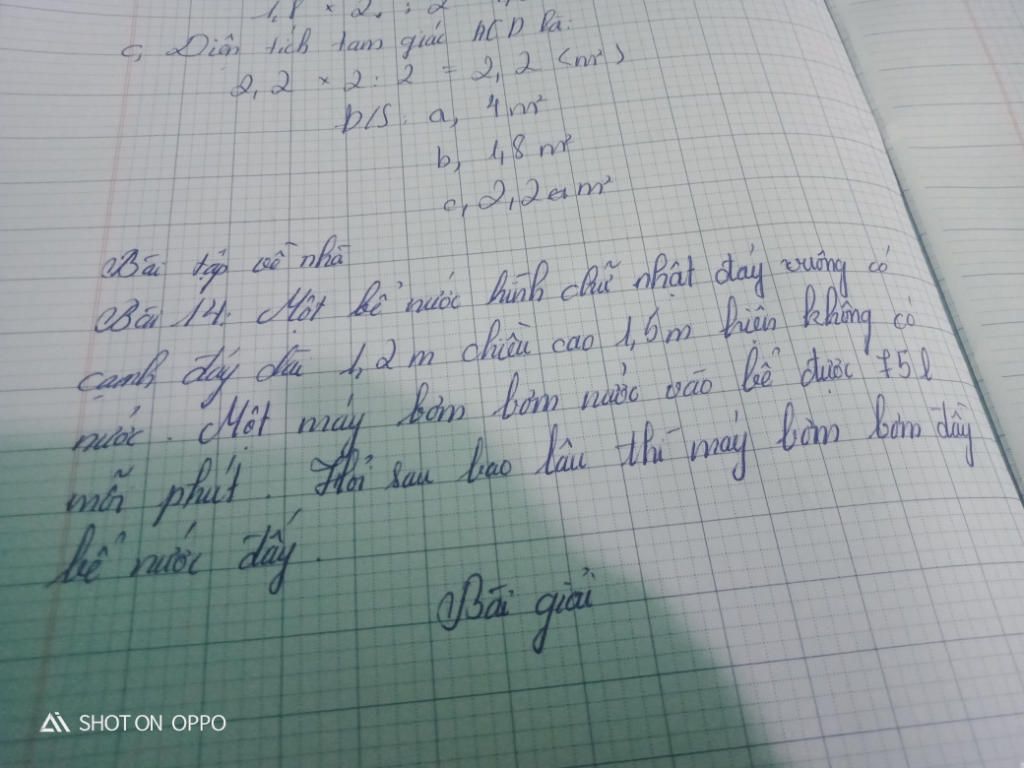 1,8 × 2 : 2
c, Diện tích tam giác ACD là:
2,2 × 2 : 2 = 2,2 (m²)
Đ/S: a, 4 m²
b, 1,8 m²
c, 2,2 m²
Bài tập về nhà
Bài 14: Một bể nước hình chữ nhật đáy vuông có
cạnh đáy dài 1,2 m chiều cao 1,5 m hiện không có
nước. Một máy bơm bơm nước vào bể được 75 l
mỗi phút. Hỏi sau bao lâu thì máy bơm bơm đầy
bể nước đấy.
Bài giải
SHOT ON OPPO